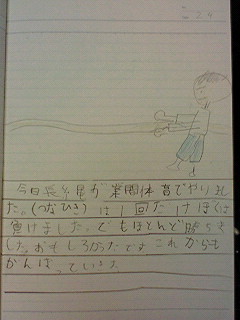 今日
が業間体育でやりまし
た。(つなひき)は1回だけぼくは
負けました。でもほとんど勝ちま
した。おもしろかったです これからも
がんばっていき